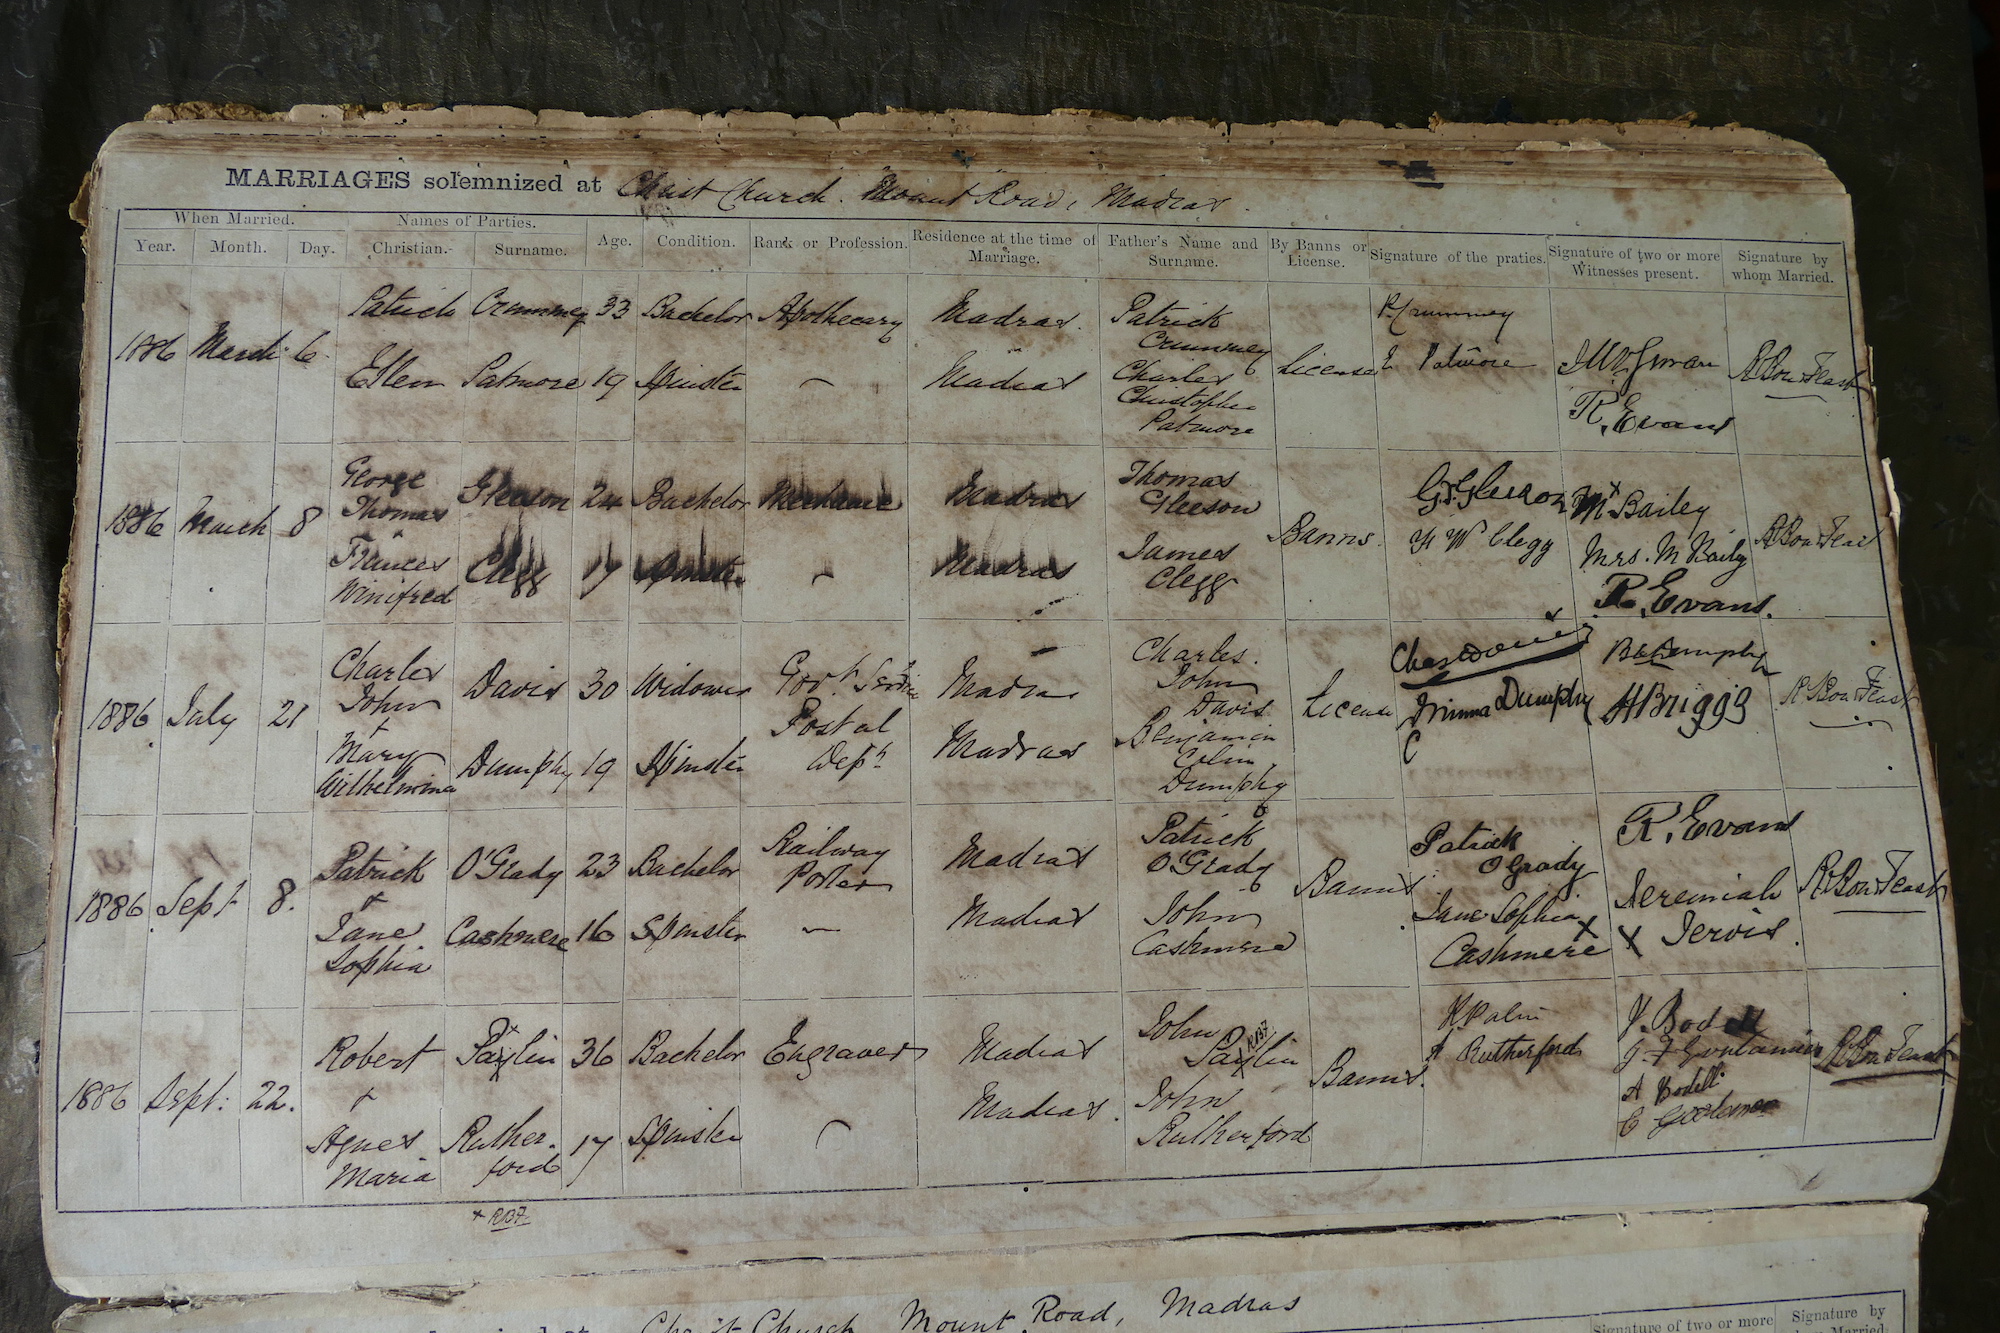 MARRIAGES solemnized at Christ Church. Mount Road, Madras.
When Married. Names of Parties. Age. Condition. Rank or Profession. Residence at the time of Marriage. Father's Name and Surname. By Banns or License. Signature of the praties. Signature of two or more Witnesses present. Signature by whom Married.
Year. Month. Day. Christian.- Surname.
1886 March 6.
Patrick Crummey 33 Bachelor Apothecary Madras. Patrick Crummey
Ellen Patmore 19 Spinster Madras Charles Christopher Patmore
License
P. Crummey
E Patmore
R. Evans
R Bow Feast
1886 March 8
George Thomas Gleeson 24 Bachelor Mechanic Madras Thomas Gleeson
+
Frances Winifred Clegg 17 Spinster Madras James Clegg
Banns.
G. T. Gleeson
F W Clegg
M Bailey
Mrs. M Baily
R. Evans.
R Bow Feast
1886 July 21
Charles John Davis 30 Widower Govt. Service Postal Dept. Madras Charles. John Davis
+
Mary Wilhelmina Dumphy 19 Spinster Madras Benjamin Colin Dumphy
License
Chas Davis
Minna Dumphy
Dumphy
H Briggs
R Bow Feast
1886 Sept 8.
Patrick O'Grady 23 Bachelor Railway Porter Madras Patrick O'Grady
+
Jane Sophia Cashmere 16 Spinster Madras John Cashmere
Banns.
Patrick O Grady
Jane Sophia X Cashmere
R. Evans
Jeremiah X Jervis.
R Bow Feast
1886 Sept: 22.
Robert Paxlin 36 Bachelor Engraver Madras John Paxlin
RBF
+
Agnes Maria Rutherford 17 Spinster Madras. John Rutherford
Banns.
R Palin
A Rutherford
J. Bodell
A Bodell
R Bow Feast
+ RBF
Christ Church Mount Road, Madras
Signature of two or more
Signature by